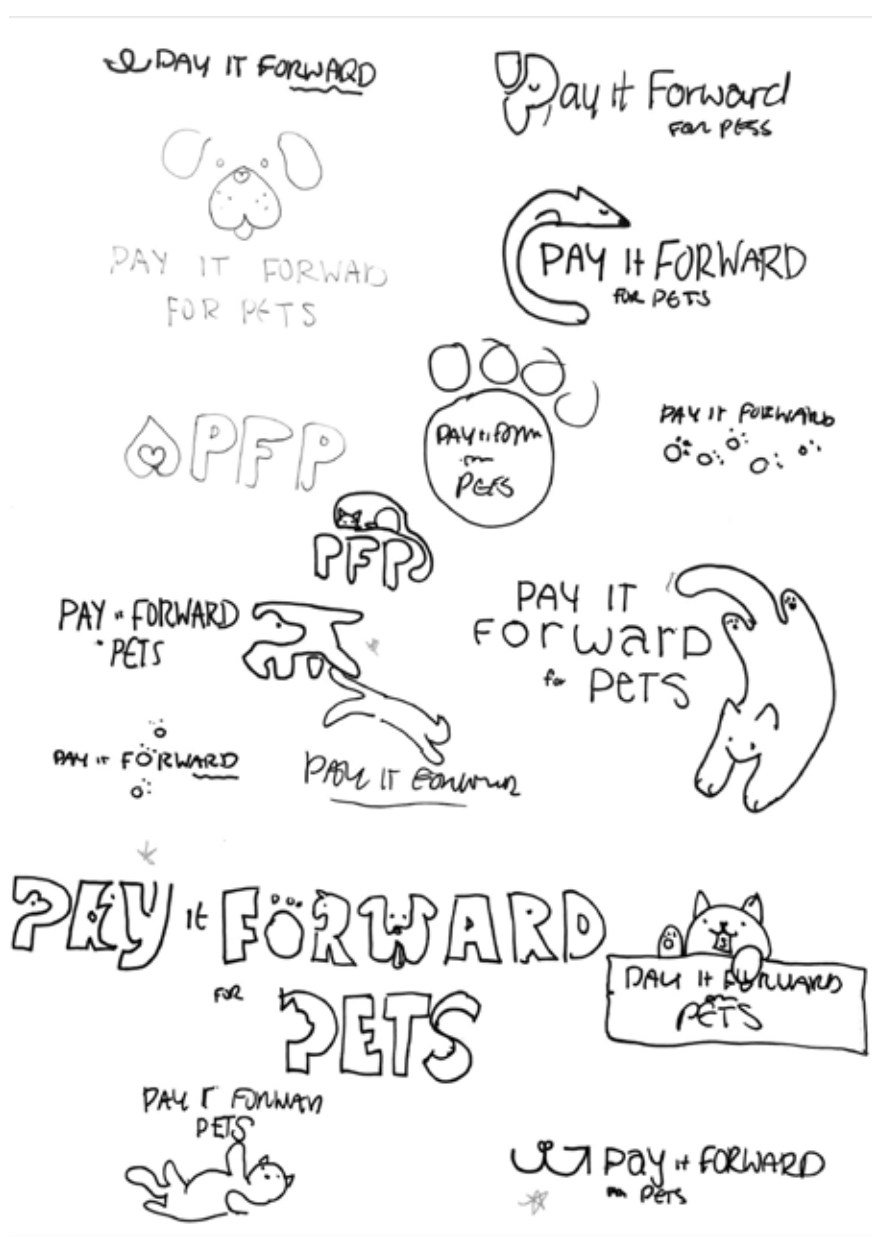 PAY IT FORWARD
Pay it Forward
FOR PETS
PAY IT FORWAD
FOR PETS
PAY It FORWARD
FOR PETS
PFP
PAY it
PETS
PAY IT FORWARD
PFP
PAY it FORWARD
PETS
PAY IT
Forward
for PETS
PAY IT FORWARD
PAY IT
PAY it FORWARD
FOR
PETS
PAY It FORWARD
PETS
PAY IT
PETS
Pay it FORWARD
PETS